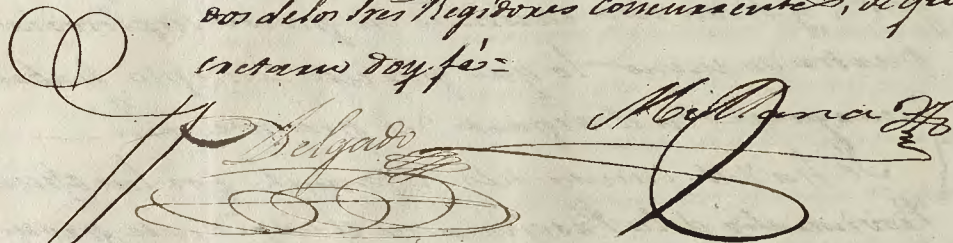 dos delos Sres Regidores Concurrentes, de que
cretario doy fé=
Delgado